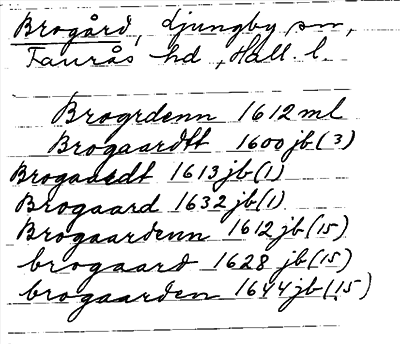 Brogård, Ljungby sn,
Faurås hd, Hall. l.
Brogrdenn 1612 ml
Brogaardtt 1600 jb (3)
Brogaaedt 1613 jb (1)
Brogaard 1632 jb (1)
Brogaardenn 1612 jb (15)
brogaard 1628 jb (15)
brogaarden 1644 jb (15)